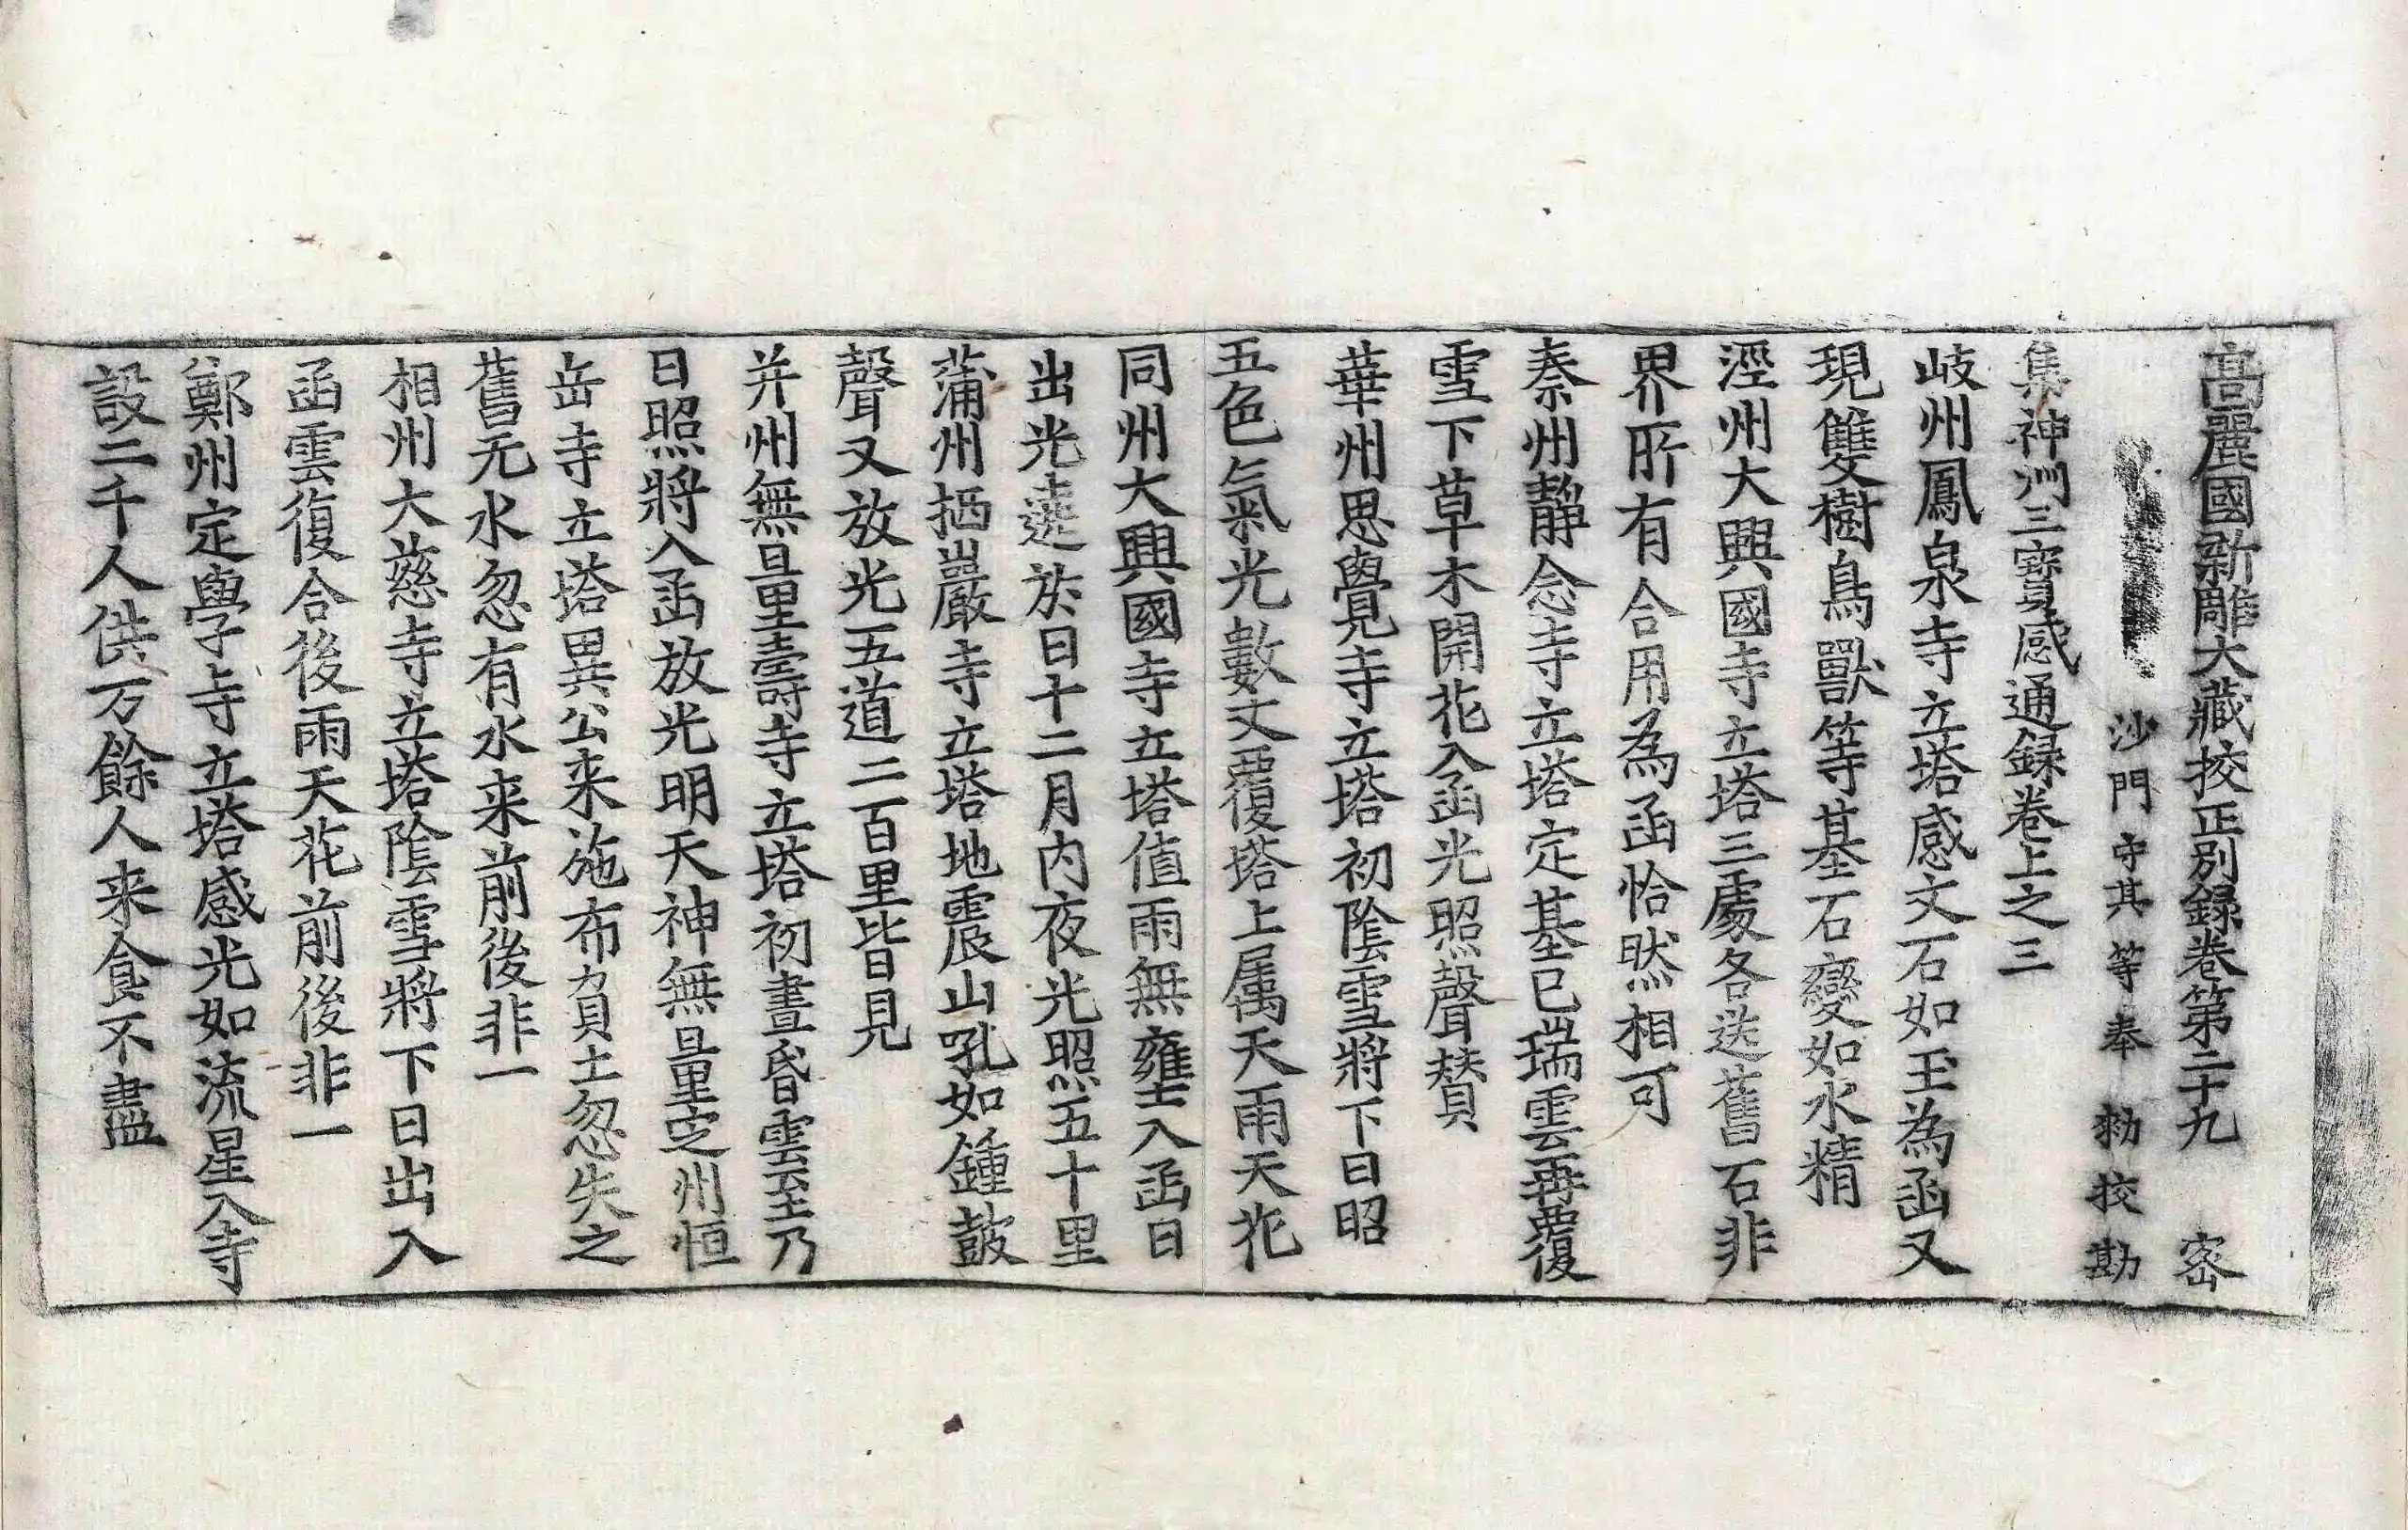 高麗國新雕大藏挍正別録卷第二十九 密
沙門守其等奉勑挍勘
集神洲三寳感通録卷上之三
岐州鳳泉寺立塔感文石如玉為函又
現雙樹鳥獸等基石變如水精
涇州大興國寺立塔三處各送舊石非
界所有合用為函恰然相可
秦州靜念寺立塔定基已瑞雲再覆
雪下草木開花入函光照聲賛
華州思覺寺立塔初陰雪將下日昭
五色氣光數丈覆塔上属天雨天花
同州大興國寺立塔值雨無壅入函日
出光遶於日十二月内夜光照五十里
蒲州栖巖寺立塔地震山吼如鍾鼓
聲又放光五道二百里皆見
并州無量壽寺立塔初晝昏雲至乃
日照將入函放光明天神無量定州恒
岳寺立塔異公来施布負土忽失之
舊无水忽有水来前後非一
相州大慈寺立塔陰雪將下日出入
函雲復合後雨天花前後非一
鄭州定學寺立塔感光如流星入寺
設二千人供万餘人来食不盡